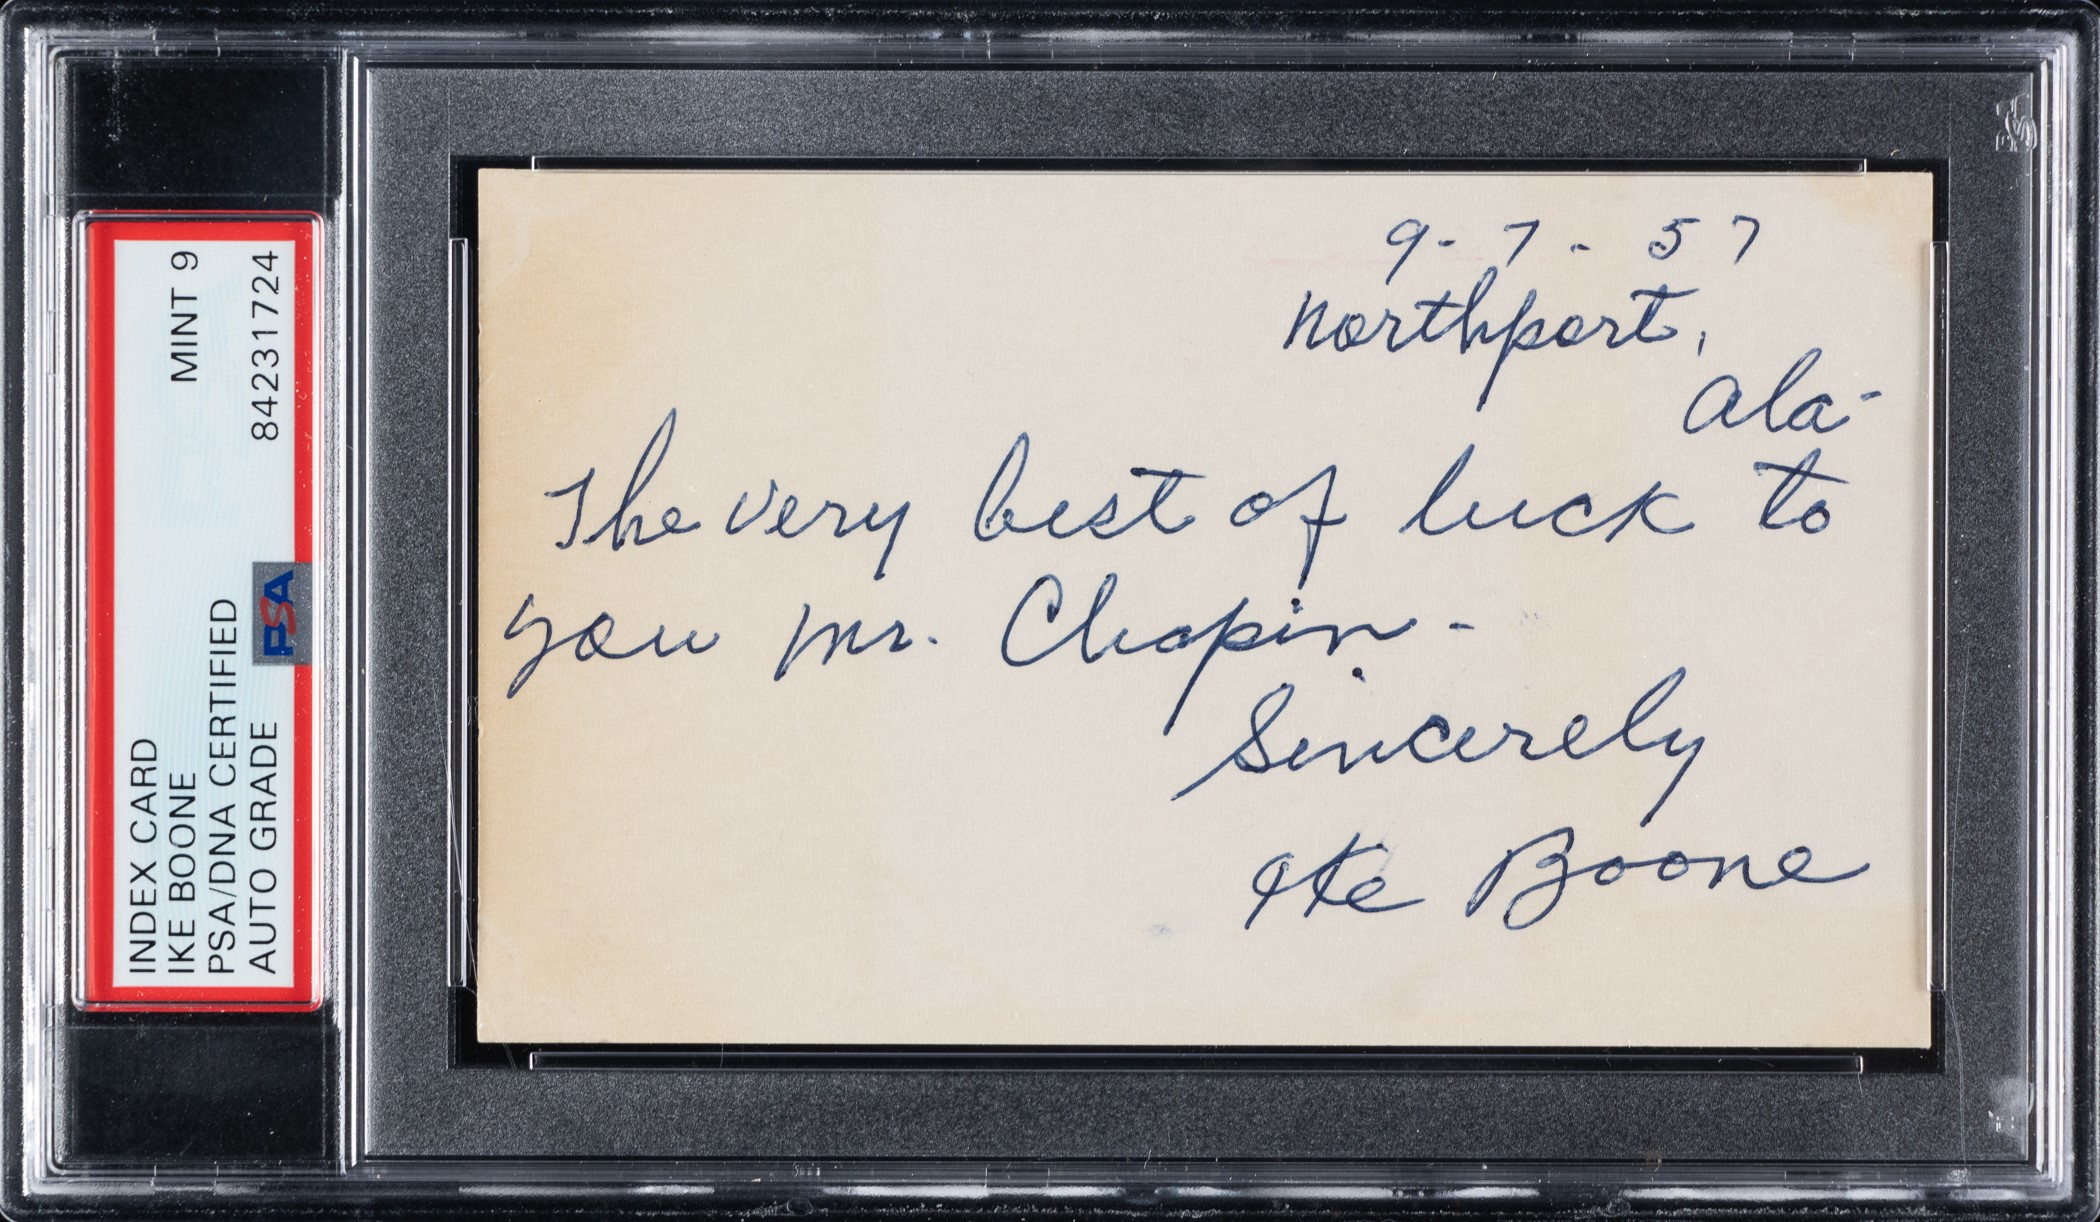 INDEX CARD
IKE BOONE
MINT 9
PSA/DNA CERTIFIED
AUTO GRADE
84231724
PSA
9-7-57
Northport,
Ala-
The very best of luck to
you Mr. Chapin-
Sincerely
Ike Boone